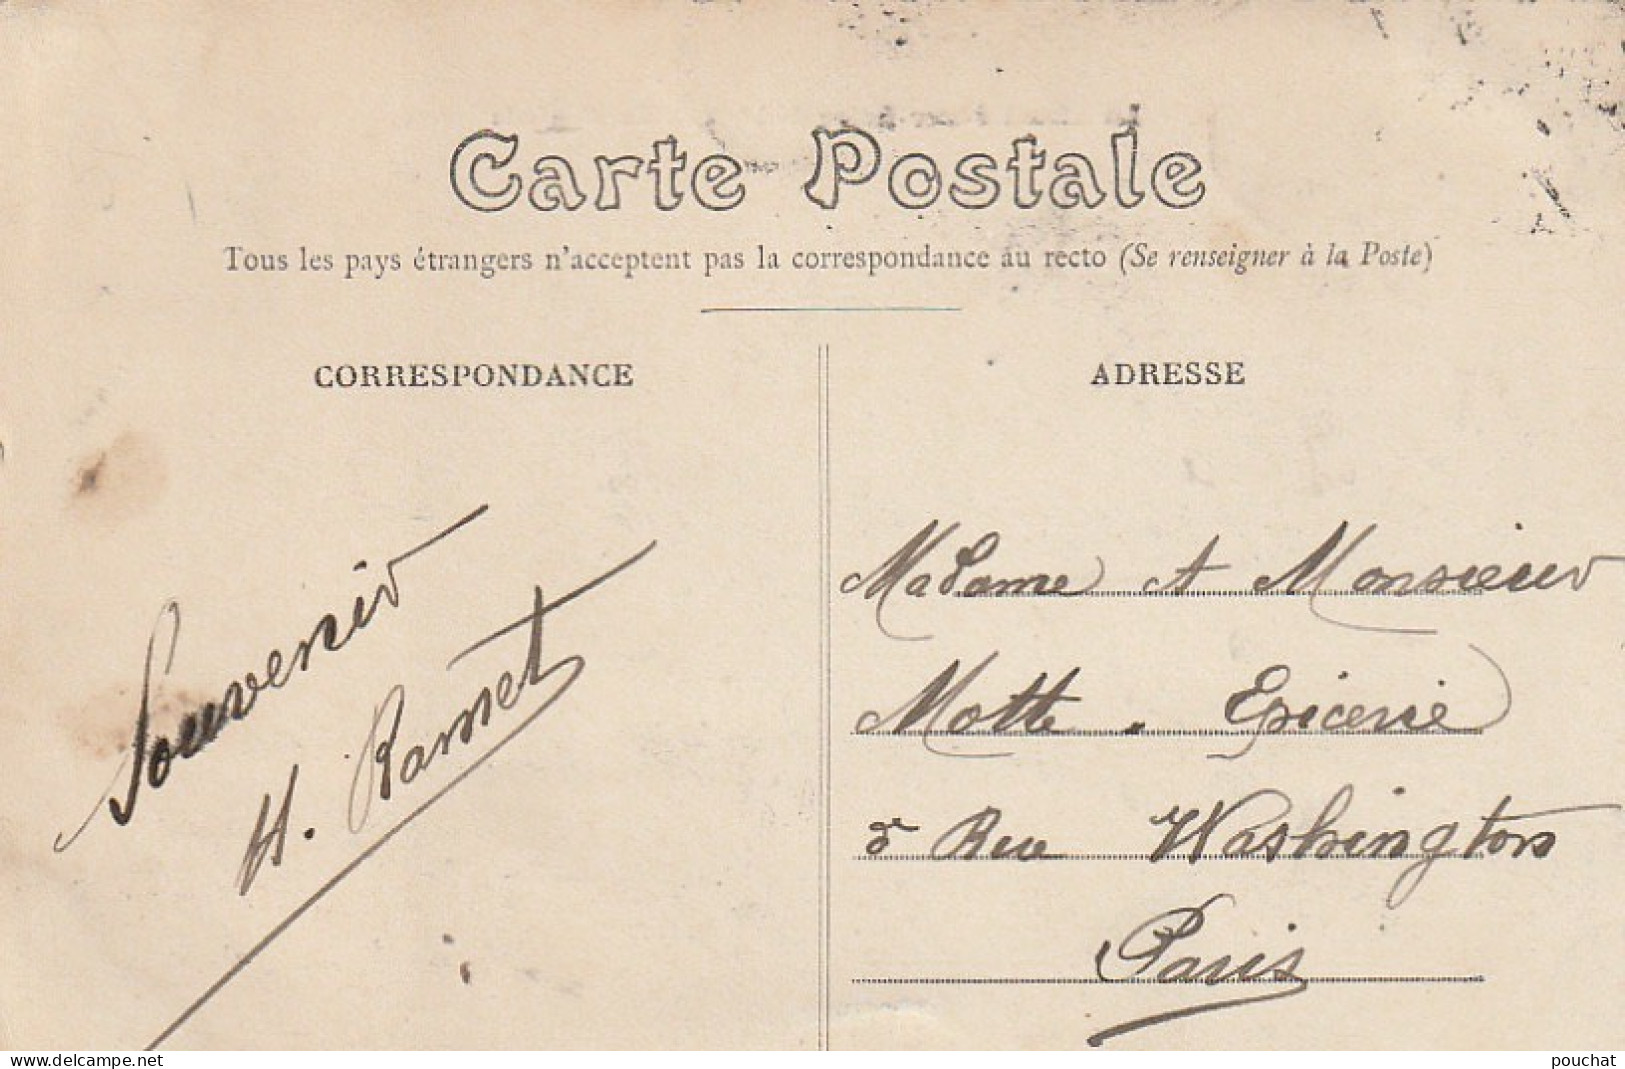 Carte Postale
Tous les pays étrangers n'acceptent pas la correspondance au recto (Se renseigner à la Poste)
CORRESPONDANCE
Souvenir
H. Ramet
ADRESSE
Madame et Monsieur
Motte. Epicerie
5 Rue Washington
Paris
www.delcampe.net
pouchat